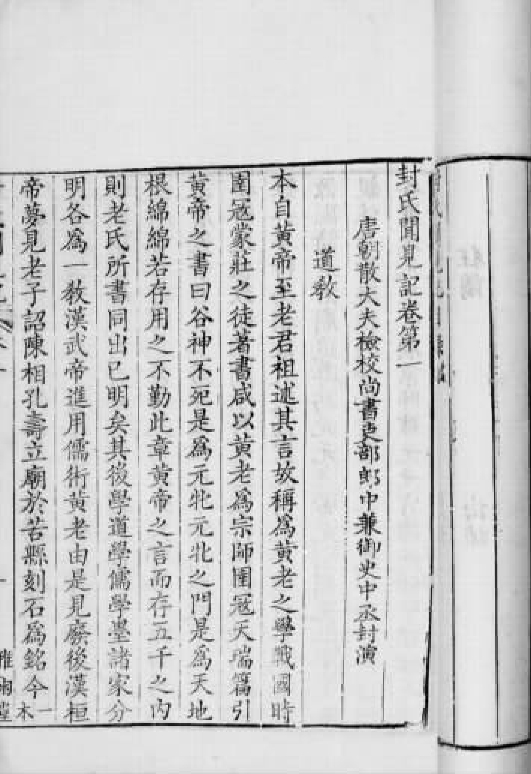 封氏聞見記卷第一
唐朝散大夫檢校尚書吏部郎中兼御史中丞封演
道教
本自黃帝至老君祖述其言故稱為黃老之學戰國時
圄冦蒙莊之徒著書咸以黃老為宗師圄冦天瑞篇引
黃帝之書曰谷神不死是為元牝元牝之門是為天地
根綿綿若存用之不勤此章黃帝之言而存五千之內
則老氏所書同出已明矣其後學道學儒學墨諸家分
明各為一教漢武帝進用儒術黃老由是見廢後漢桓
帝夢見老子詔陳相孔壽立廟於苦縣刻石為銘今一本
雅雨堂